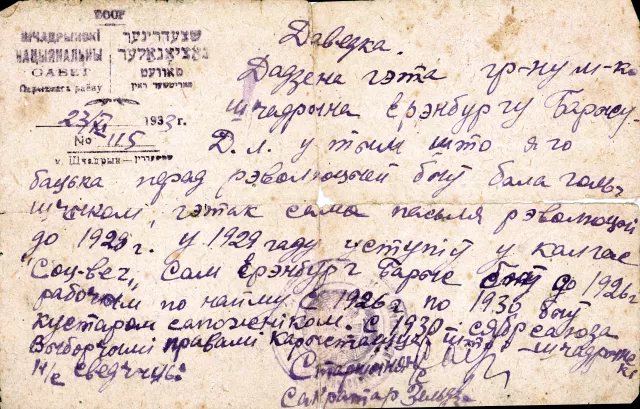 БССР
ШЧАДРЫНСКІ
НАЦЫЯНАЛЬНЫ
САВЕТ
Парыцкага раёну
שצעדרינער
נאציאנאלער
סאוועט
23/VI 1933 г.
No 115
м. Шчадрын — שצעדרין
Даведка.
Дадзена гэта гр-ну м-ка
Шчадрына Ерэнбургу Барысу
Д.Л. у тым што яго
бацька перад рэволюцыей быў бала голь-
шчыком, гэтак сама пасьля рэволюцыи
до 1929 г. у 1929 гаду уступіў у калгас
"Соц-веч" Сам Ерэнбург Барыс быў до 1926 г
рабочым по найму с 1926 г по 1930 быў
кустаром сапожніком. с 1930 - сябр саюза
Выборчымі правамі карыстаицца што Шчадрынскі
н/с сведчиць.
Старшыня
Сакратар Зельдз